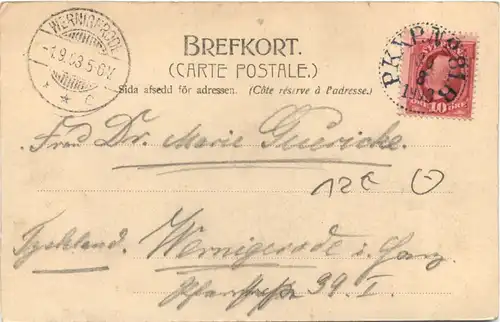 WERNIGERODE
-1.9.03.5-6V.
* * c
BREFKORT.
(CARTE POSTALE.)
Sida afsedd för adressen. (Côte réservé à l'adresse.)
PKXP.Nº81.B
10 ÖRE
Frau Dr. Marie Guericke.
12€
Tyskland. Wernigerode i. Harz
Pfarrstraße 39. I.